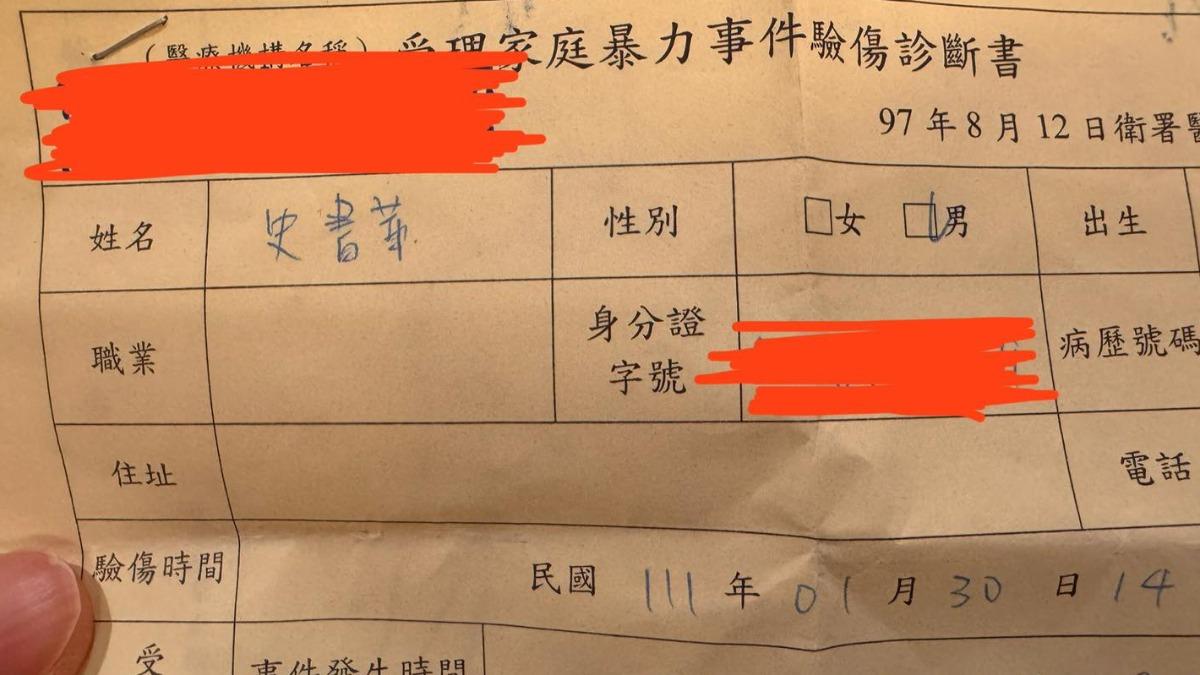 （醫療機構名稱）受理家庭暴力事件驗傷診斷書
97年8月12日衛署醫
姓名 史書華 性別 □女 □男 出生
職業 身分證字號 病歷號碼
住址 電話
驗傷時間 民國 111 年 01 月 30 日 14
受 事件發生時間